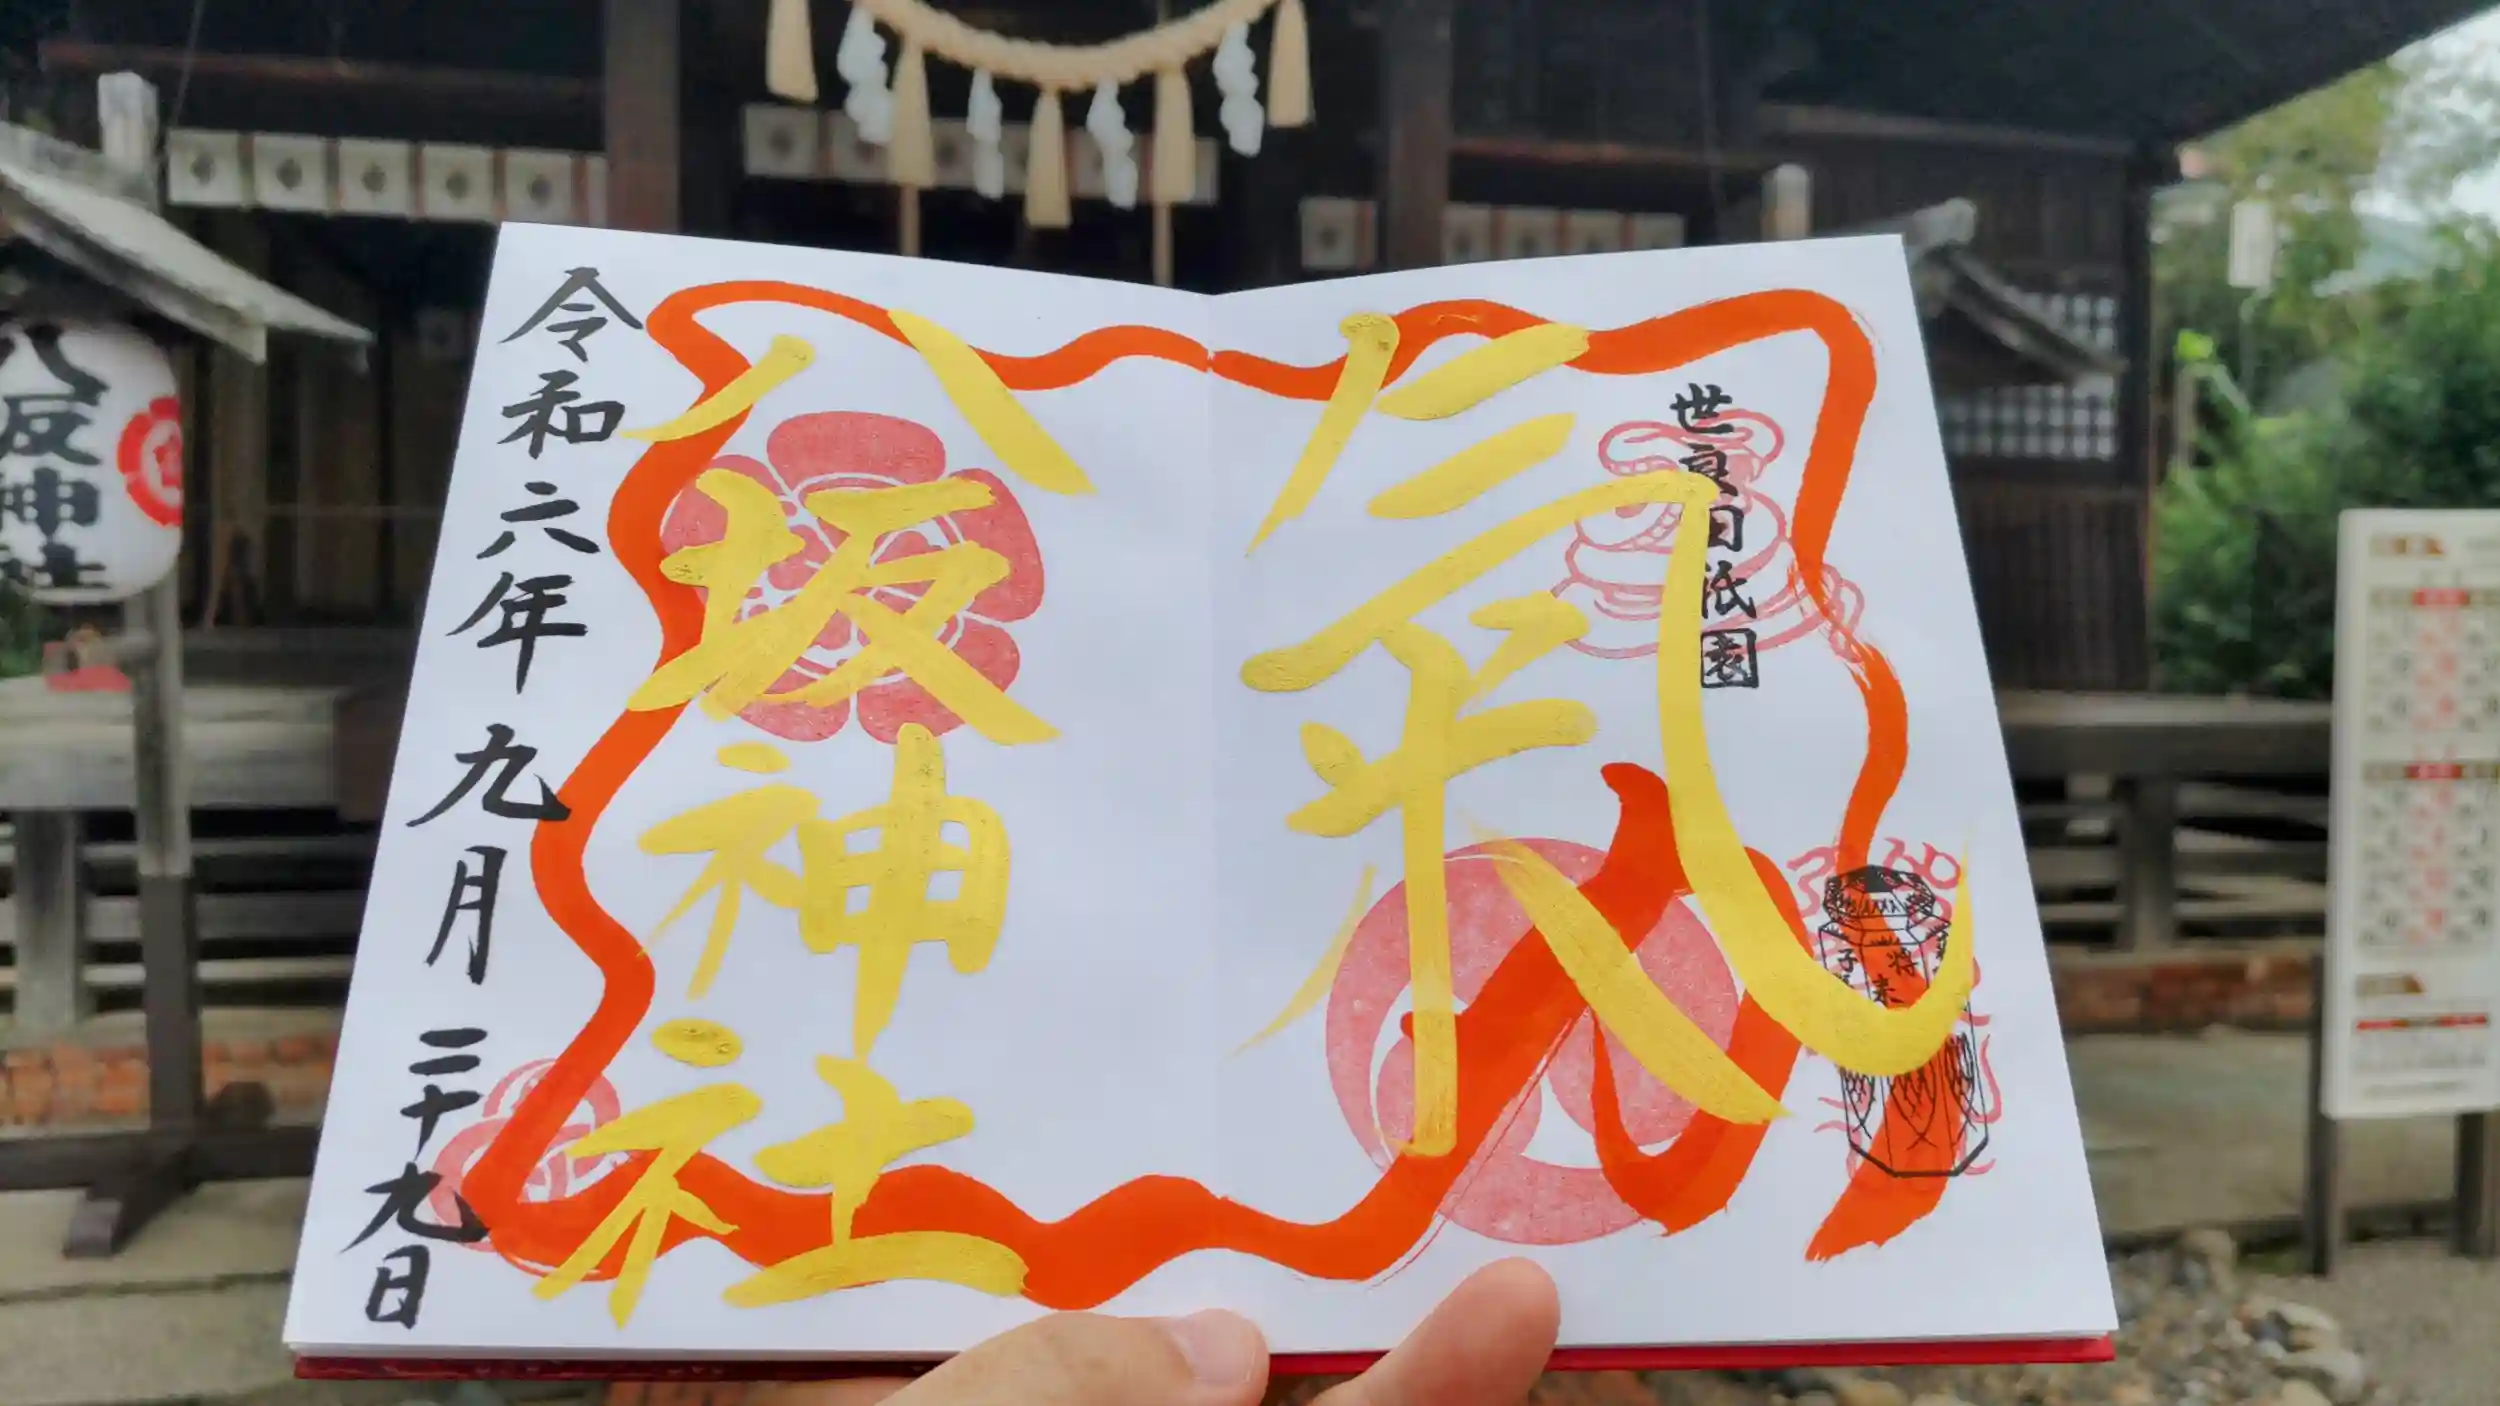 世良田祇園
氣
八坂神社
令和六年九月二十九日
将来
子
八坂神社